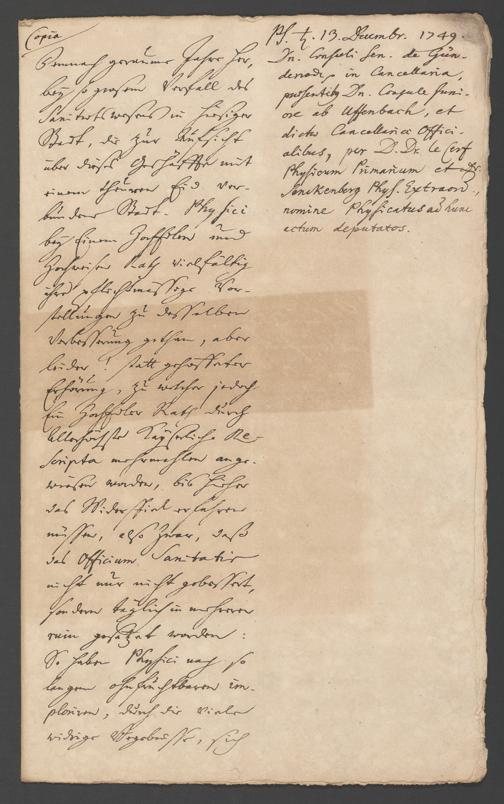 Copia
Demnach geraume Jahre her,
bey so grosem Verfall des
Sanitætswesens in hiesiger
Stadt, die zur Aufsicht
über dieses Geschäffte mit
einem theuren Eid ver-
bundene Stadt-Physici
bey Einem Hochedlen und
Hochweisen Rath vielfältig
ihre pflichtmässige Vor-
stellungen zu desselben
Verbesserung gethan, aber
leider! statt gehoffter
Erhörung, zu welcher jedoch
Ein Hochedler Rath durch
Allerhöchste Kayserliche Re-
scripta mehrmahlen ange-
wiesen worden, bis hieher
das Widerspiel erfahren
müssen, also zwar, daß
das Officium Sanitatis
nicht nur nicht gebessert,
sondern täglich in mehreren
ruin gesetzet worden:
So haben Physici nach so
langen ohnfruchtbaren im-
ploriren, durch die viele
widrige Vorgebnisse, sich
Ps. ♄. 13. Decembr. 1749.
Dn. Consuli Sen. de Gün-
derode, in Cancellaria,
præsentib. Dn. Consule Juni-
ore ab Uffenbach, et
dictæ Cancellariæ Offici-
alibus, per D.Dr. le Cerf
Physicum Primarium et
Senckenberg Phys. Extraord.,
nomine Physicatus ad hunc
actum deputatos.